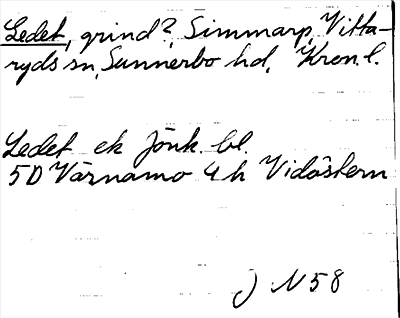 Ledet, grind?, Simmarp, Vitta-
ryds sn, Sunnerbo hd, Kron. l.
Ledet ek Jönk. bl.
5D Värnamo 4 h Vidöstern
J N 58